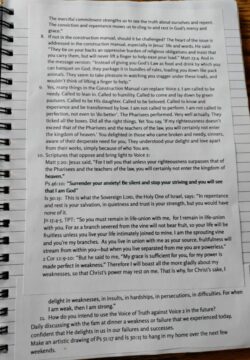 The merciful commitment strengthens us to see the truth about ourselves and repent.
The conviction and repentance moves us to cling to and rest in God's mercy and
grace."
8. If not in the construction manual, should it be challenged? The heart of the issue is
addressed in the construction manual, especially in Jesus' life and words. He said:
"They tie on your backs an oppressive burden of religious obligations and insist that
you carry them, but will never lift a finger to help ease your load." Matt 23:4. And in
the message version: "Instead of giving you God's Law as food and drink by which you
can banquet on God, they package it in bundles of rules, loading you down like pack
animals. They seem to take pleasure in watching you stagger under these loads, and
wouldn't think of lifting a finger to help."
9. Yes, many things in the Construction Manual can replace Voice 1. I am called to be
needy. Called to lean in. Called to humility. Called to come and lay down by green
pastures. Called to be His daughter. Called to be beloved. Called to know and
experience and be transformed by love. I am not called to perform. I am not called to
perfection, not even to 'do better'. The Pharisees performed. Very well actually. They
ticked all the boxes. Did all the right things. Yet You say, 'If my righteousness doesn't
exceed that of the Pharisees and the teachers of the law, you will certainly not enter
the kingdom of heaven.' You delighted in those who came broken and needy, sinners,
aware of their desperate need for you. They understood your delight and love apart
from their works, simply because of who You are.
10. Scriptures that oppose and bring light to Voice 1:
Matt 5:20: Jesus said, "For I tell you that unless your righteousness surpasses that of
the Pharisees and the teachers of the law, you will certainly not enter the kingdom of
heaven."
Ps 46:10: "Surrender your anxiety! Be silent and stop your striving and you will see
that I am God"
Is 30:15: This is what the Sovereign LORD, the Holy One of Israel, says: "In repentance
and rest is your salvation, in quietness and trust is your strength, but you would have
none of it.
Jn 15:4-5, TPT: "So you must remain in life-union with me, for I remain in life-union
with you. For as a branch severed from the vine will not bear fruit, so your life will be
fruitless unless you live your life intimately joined to mine. I am the sprouting vine
and you're my branches. As you live in union with me as your source, fruitfulness will
stream from within you—but when you live separated from me you are powerless."
2 Cor 12:9-10: "But he said to me, "My grace is sufficient for you, for my power is
made perfect in weakness." Therefore I will boast all the more gladly about my
weaknesses, so that Christ's power may rest on me. That is why, for Christ's sake, I
delight in weaknesses, in insults, in hardships, in persecutions, in difficulties. For when
I am weak, then I am strong."
11. How do you intend to use the Voice of Truth against Voice 1 in the future?
Daily discussing with the fam at dinner a weakness or failure that we experienced today,
confident that He delights in us in our failures and successes.
Make an artistic drawing of Ps 51:17 and Is 30:15 to hang in my home over the next few
weekends.